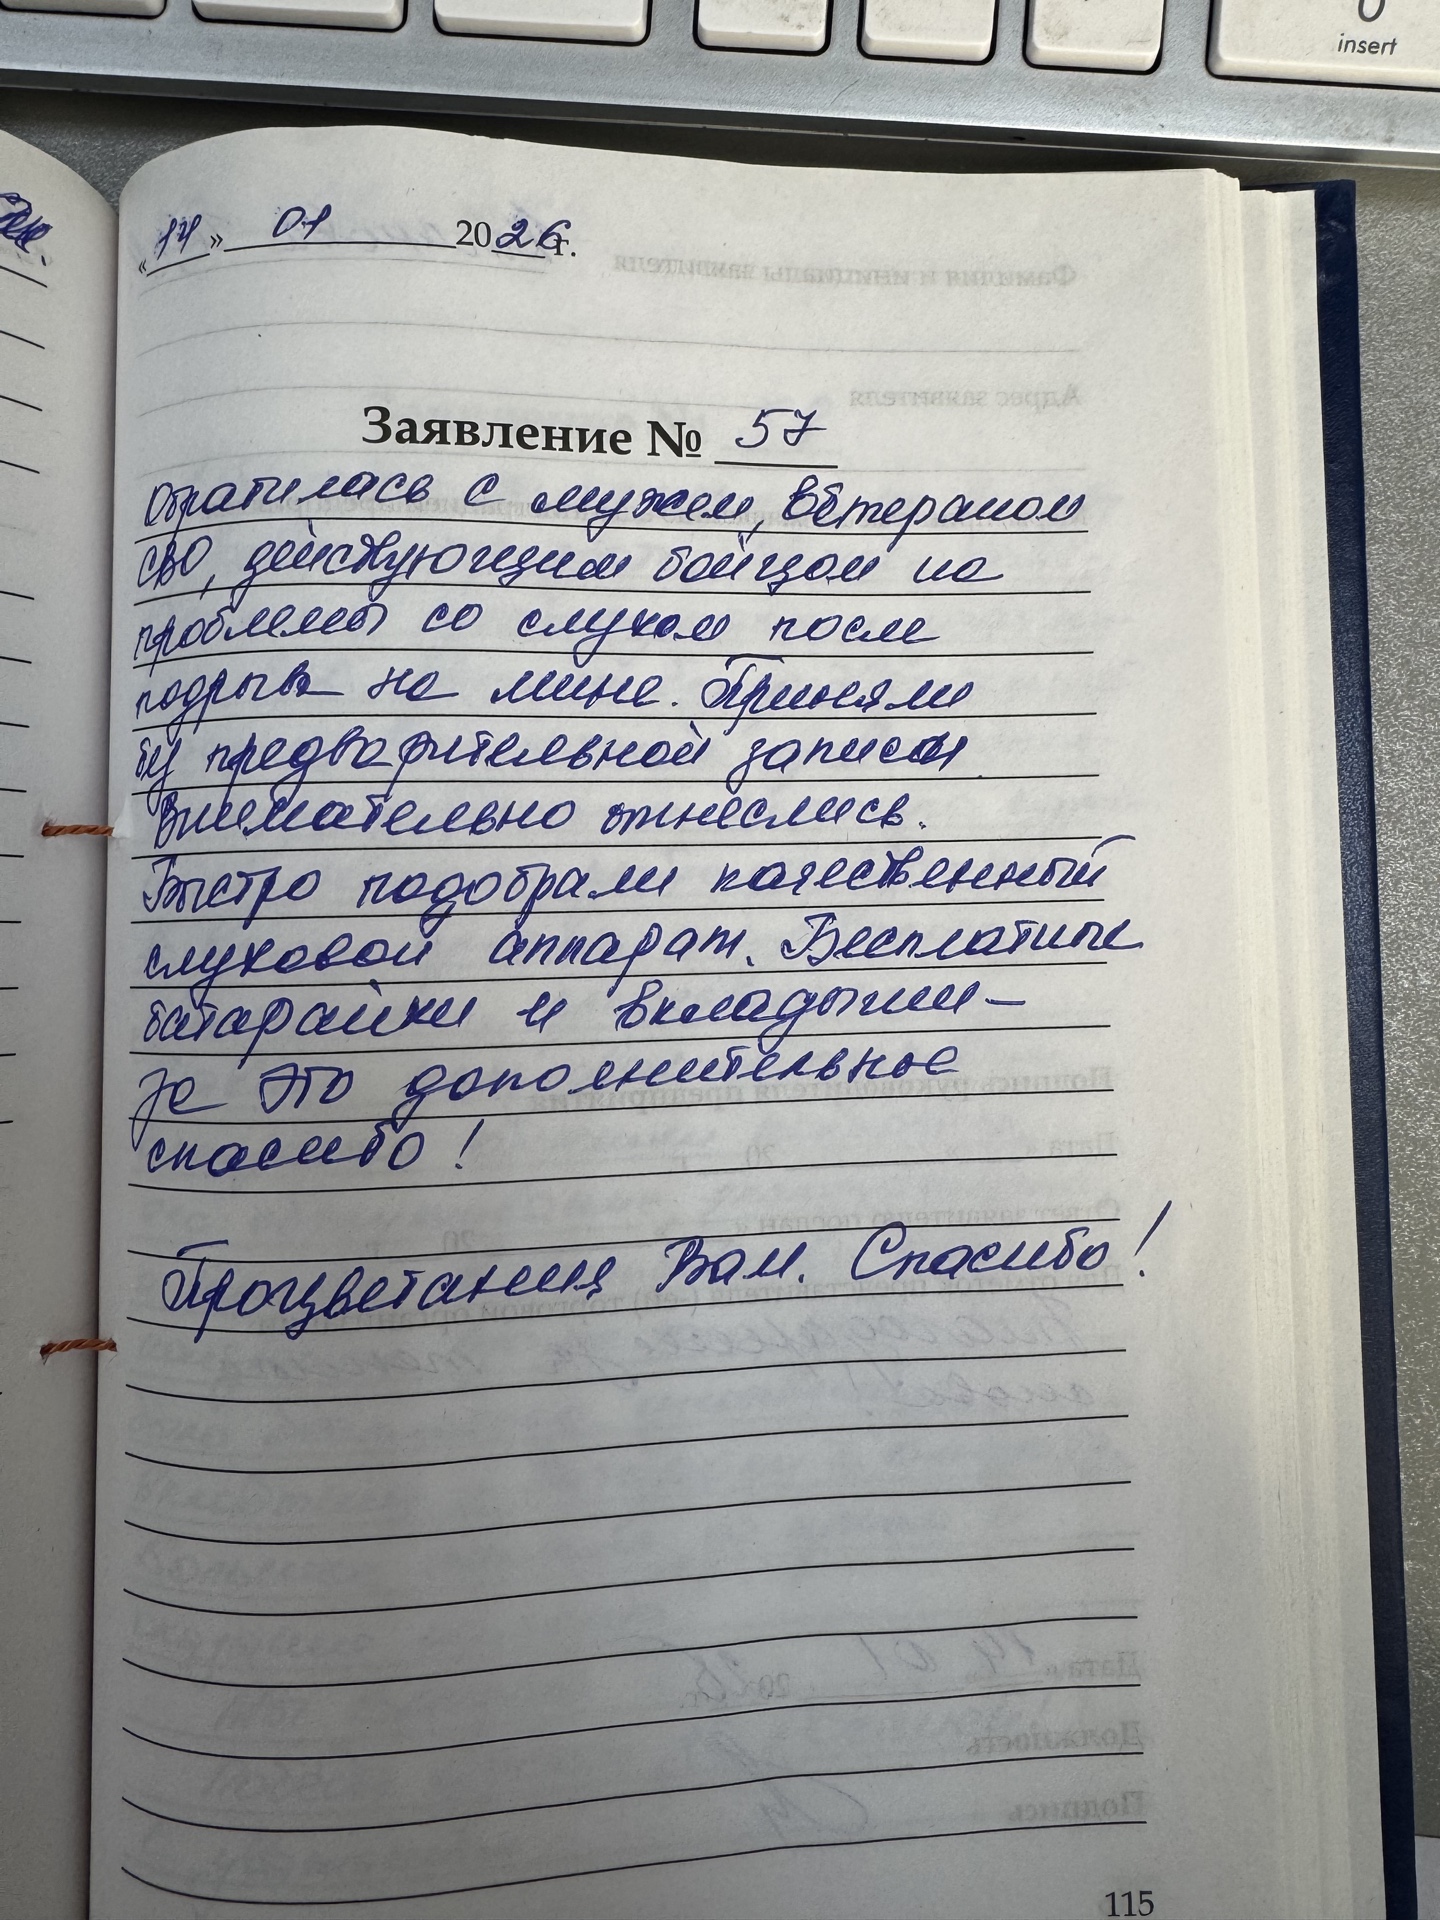 insert
«14» 01 2026г.
Заявление № 57
Обратилась с мужем, ветераном
СВО, действующим бойцом на
проблемы со слухом после
подрыва на мине. Приняли
без предварительной записи
Внимательно отнеслись.
Быстро подобрали качественный
слуховой аппарат. Бесплатные
батарейки и вкладыши –
за это дополнительное
спасибо!
Процветания Вам. Спасибо!
115